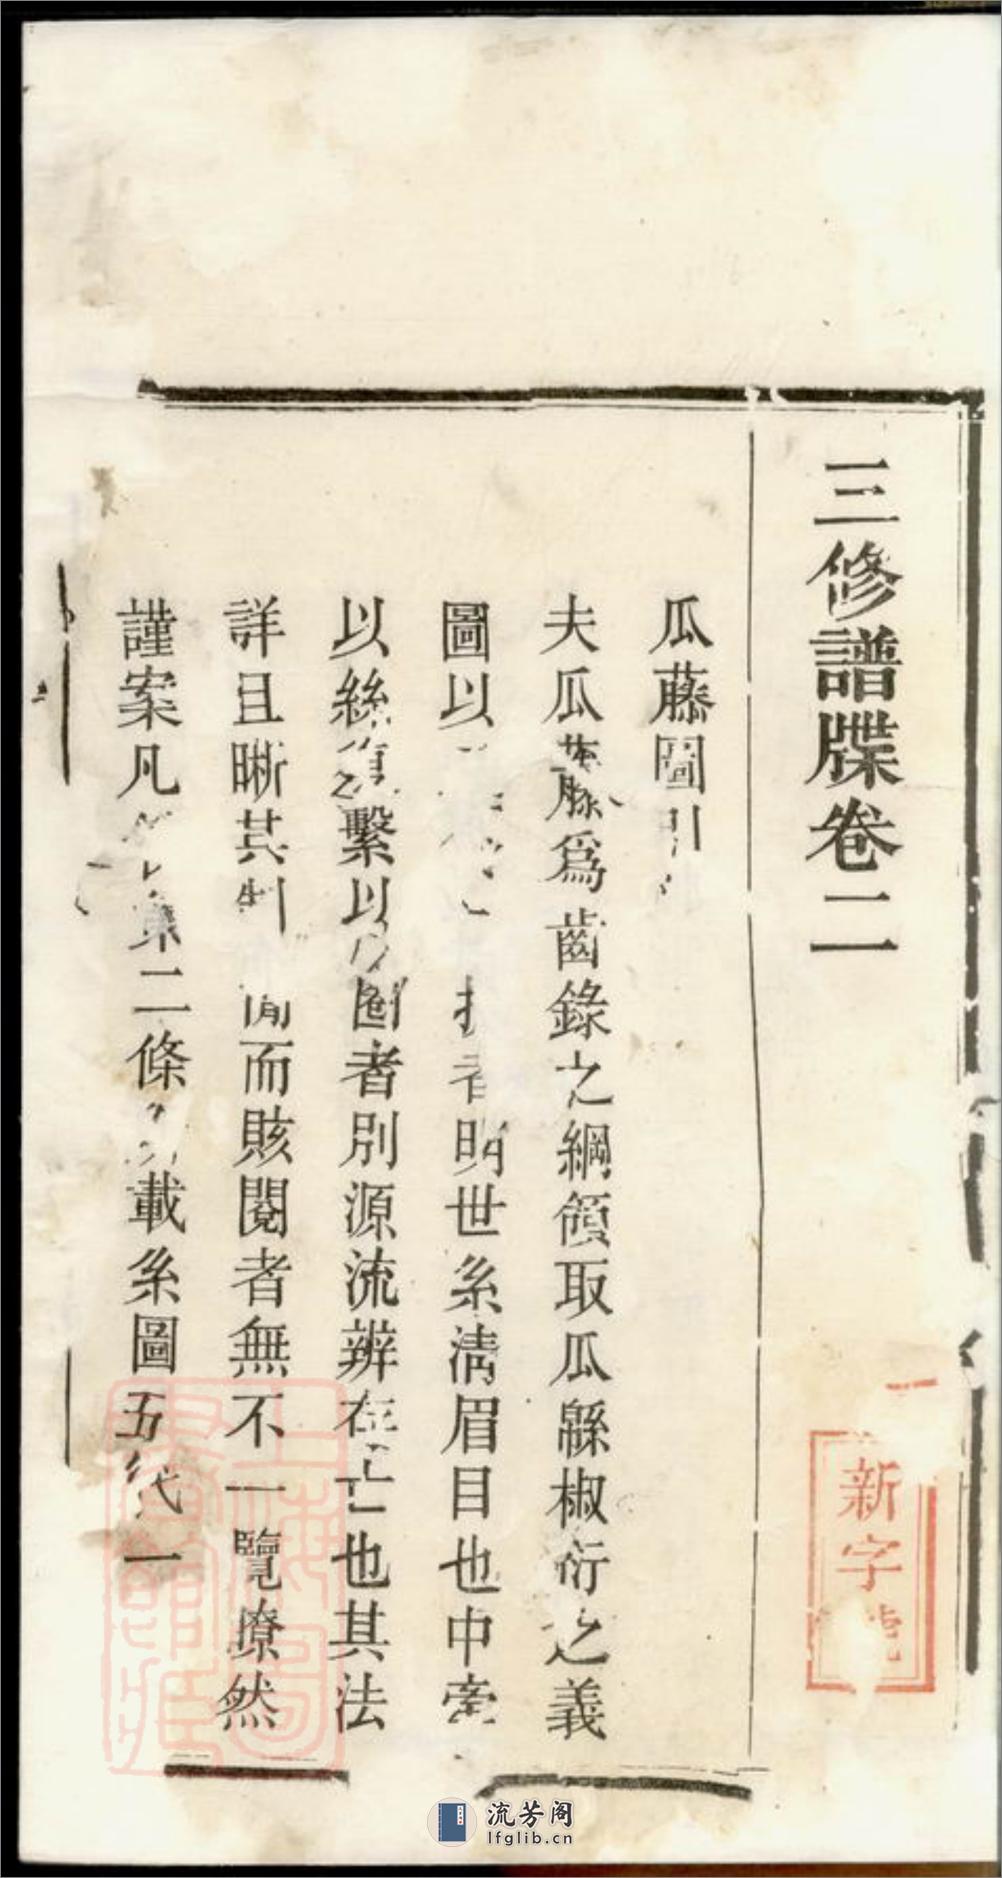 三修譜牒卷二
瓜藤圖引
夫瓜藤爲齒錄之綱領取瓜緜椒衍之義
圖以者明世系清眉目也中旁
以絲繫以圈者別源流辨在亡也其法
詳且晰其制而賅閱者無不一覽瞭然
謹案凡第二條載系圖五代一
新字號
上海圖書館藏
流芳阁
lfglib.cn